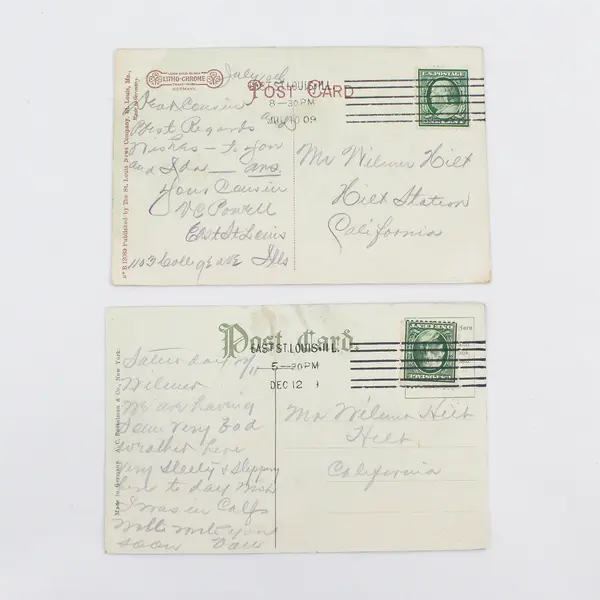 LITHO-CHROME
GERMANY.
POST CARD
EAST ST. LOUIS ILL.
8-30PM
JUL 10 09
U.S. POSTAGE
No E 13089 Published by The St. Louis News Company, St. Louis, Mo.,
Made in Germany.
July
Dear Cousin
Best Regards and
Wishes - to you
and Ida - ans
Your Cousin
V C Powell
East St Louis
1103 College ave Ills
Mr Wilmer Hilt
Hilt Station
California
Post Card.
EAST ST. LOUIS ILL.
5-30PM
DEC 12
Made in Germany. A. C. Bosselman & Co., New York
Saturday
Wilmer
We are having
Some Very Bad
weather here
Very Sleety & Slippery
here to day Wish
I was in Calfo
will write you
soon
Mr Wilmer Hilt
Hilt,
California